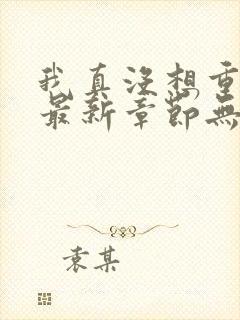 我真没想重
最新章節無
袁某